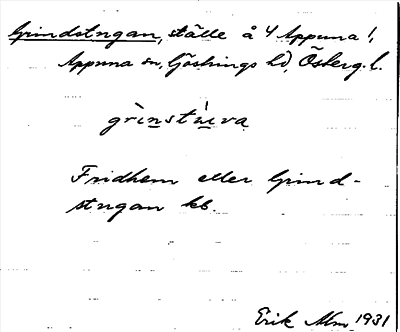 Grindstugan, ställe å 4 Appuna 1,
Appuna sn, Göstrings hd, Österg. l.
grìnstúva
Fridhem eller Grind-
stugan kb.
Erik Alm 1931